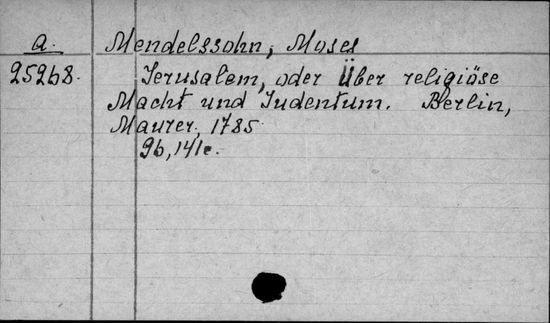 a.
Mendelssohn, Moses
25268.
Jerusalem, oder Über religiöse
Macht und Judentum. Berlin,
Maurer, 1785.
96,141c.